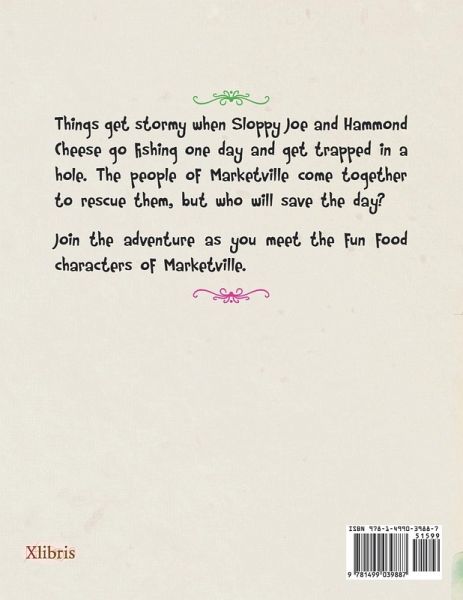 Things get stormy when Sloppy Joe and Hammond
Cheese go fishing one day and get trapped in a
hole. The people of Marketville come together
to rescue them, but who will save the day?
Join the adventure as you meet the fun food
characters of Marketville.
Xlibris
ISBN 978-1-4990-3988-7
51599
9 781499 039887